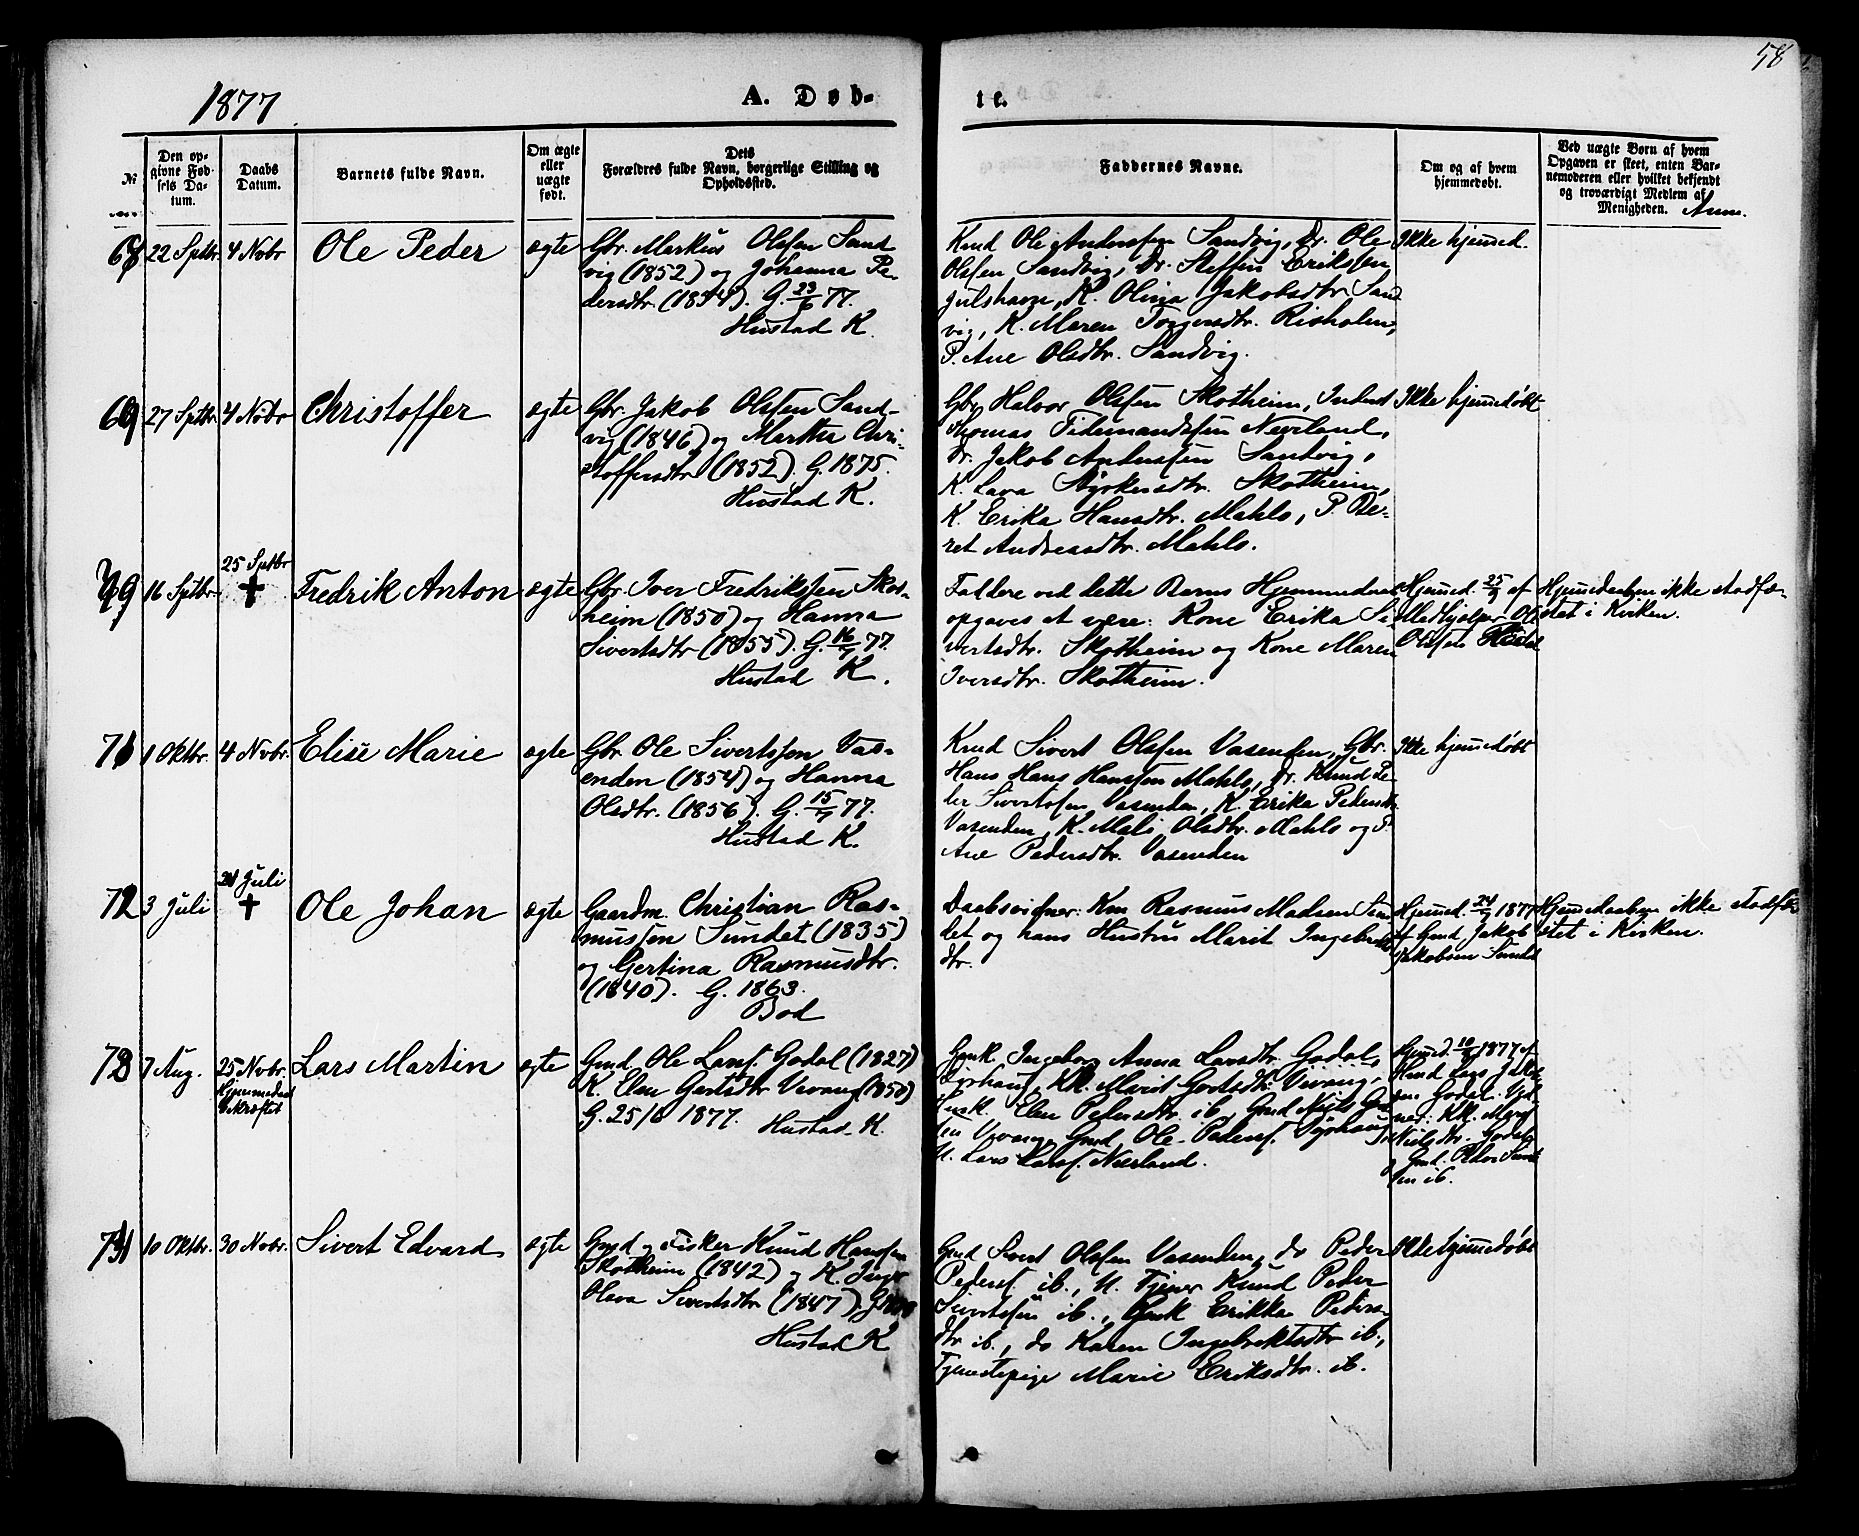 58
1877
A. Døb-
te.
№
Den op-
givne Fød-
sels Da-
tum.
Daabs
Datum.
Barnets fulde Navn.
Om ægte
eller
uægte
født.
Dets
Forældres fulde Navn, borgerlige Stilling og
Opholdssted.
Faddernes Navne.
Om og af hvem
hjemmedøbt.
Ved uægte Børn af hvem
Opgaven er skeet, enten Bar-
nemoderen eller hvilket bekjendt
og troværdigt Medlem af
Menigheden.
Anm.
22 Sptbr 4 Novbr Ole Peder ægte
Gbr. Markus Olsen Sand
vig (1852) og Johanna Pe-
dersdtr. (1854). G. 23/6 77.
Hustad K.
Knud Ole Andersen Sandvig, Dr. Ole
Olsen Sandvig, Dr. Steffen Eriksen
Julshavn, K. Olina Jakobsdtr. Sand
vig, K. Maren Torgersdtr. Risholen,
P. Ane Olsdtr. Sandvig.
Ikke hjemmed.
69 27 Sptbr. 4 Novbr Christoffer ægte
Gbr. Jakob Olsen Sand-
vig (1846) og Martha Chri-
stoffersdtr (1852). G. 1875.
Hustad K.
Gbr. Halvor Olsen Skotheim, Inderst
Thomas Tidemandsen Nerland,
Dr. Jakob Andersen Sandvig,
K. Lava Styrkersdtr. Skotheim,
K. Erika Hansdtr. Mahlo, P. Be-
ret Andreasdtr. Mahlo.
Ikke hjemmedøbt
16 Sptbr. 25 Sptbr † Fredrik Anton ægte
Gbr. Iver Fredriksen Skot-
heim (1850) og Hanna
Sivertsdtr (1855). G. 16/7 77.
Hustad K.
Faddere ved dette Barns Hjemmedaab
opgaves at være: Kone Erika Si-
vertsdtr. Skotheim og Kone Maren
Iversdtr. Skotheim.
Hjemmed. 25/9 af
Medhjælper Ole
Olsen
Hjemmedaaben ikke stadfæ-
stet i Kirken.
71 1 Oktbr. 4 Novbr. Elise Marie ægte
Gbr. Ole Sivertsen Vas-
enden (1854) og Hanna
Olsdtr. (1856). G. 15/7 77.
Hustad K.
Knud Sivert Olsen Vasenden, Gbr.
Hans Hans Hanssen Mahlo, Dr. Knud Pe-
der Sivertsen Vasenden, K. Erika Pedersdtr.
Vasenden, K. Mali Olsdtr. Mahlo og P.
Ane Pedersdtr. Vasenden
Ikke hjemmedøbt
72 3 Juli 24 Juli † Ole Johan ægte
Gaardm. Christian Ras-
mussen Sundet (1835)
og Gertina Rasmusdtr.
(1840). G. 1863.
Bod
Daabsvidner: Kmd Rasmus Madsen Sun
det og hans Hustru Marit Ingebrigts
dtr.
Hjemmed. 24/7 1877
af Gmd. Jakob
Jakobsen Sundet
Hjemmedaaben ikke stadfæ
stet i Kirken.
73 7 Aug. 25 Novbr. Hjemmedaab
bekræftet
Lars Martin ægte
Gmd. Ole Larsf. Godal (1827)
K. Elen Gertsdtr Vevang (1850)
G. 25/6 1877. Hustad K.
Gmk. Ingeborg Anna Larsdtr. Godal,
KK. Marit Gertsdtr. Vevang,
Husk. Elen Pedersdtr. ib., Gmd Niels
Vevang, Gmd. Ole Pedersf.
U. Lars Larsf. Nerland.
Hjemmed. 10/8 1877 af
Gmd Lars Jakob
sen Godal. Vid-
ner: KK. Marit
Nielsdtr. Godal
og Gmd. Peder
sen ib.
74 10 Oktbr. 30 Novbr. Sivert Edvard ægte
Gmd og Fisker Knud Hansen
Skotheim (1842) og K. Inger
Olava Sivertsdtr (1847).
Hustad K
Gmd Sivert Olsen Vasenden, do Peder
Pedersf. ib., U. Tjener Knud Peder
Sivertsen ib., Gmk Erikka Peders-
dtr ib., do Karen Ingebriktsdtr ib.,
Tjenestepige Marie Eriksdtr. ib.
Ikke hjemmedøbt